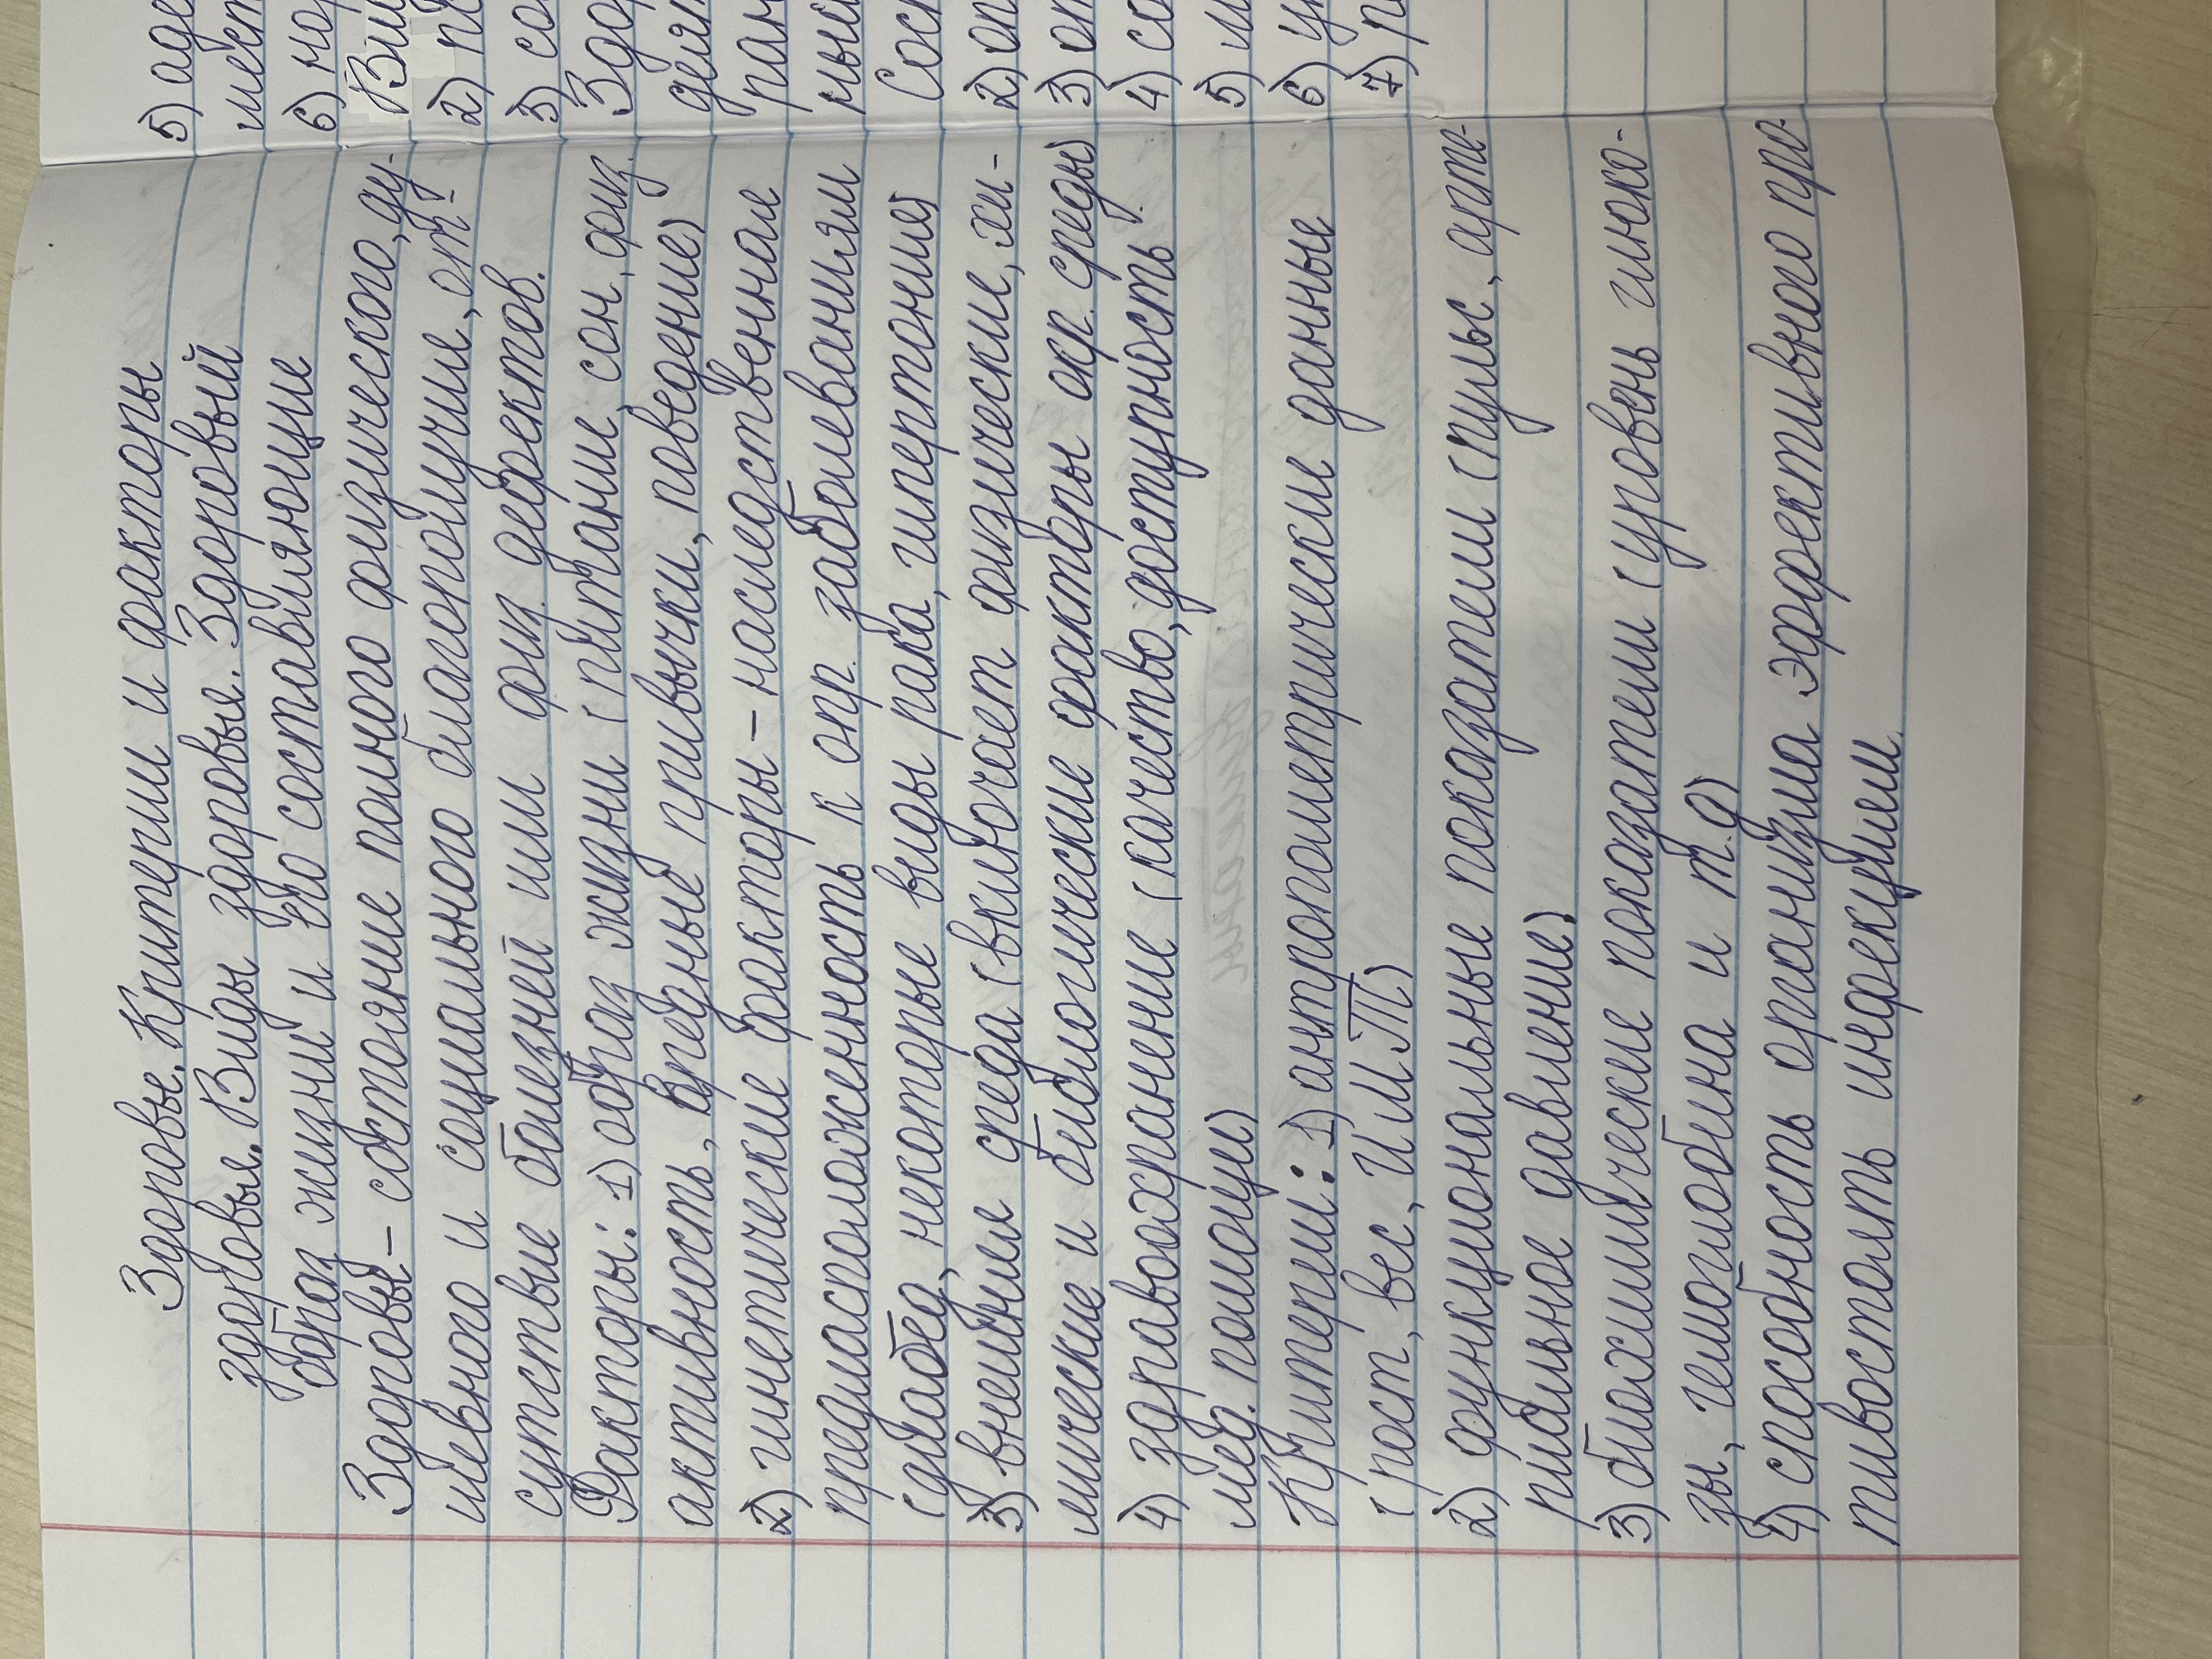 Здоровье. Критерии и факторы
здоровья. Виды здоровья. Здоровый
образ жизни и его составляющие
Здоровье – состояние полного физического, ду-
шевного и социального благополучие, от-
сутствие болезней или физ. дефектов.
Факторы: 1) образ жизни (питание, сон, физ.
активность, вредные привычки, поведение)
2) гинетические факторы – наследственная
предиасположенность к опр. заболеваниям
(диабед, некоторые виды рака, гипертония)
3) внешняя среда (включает физические, хи-
мические и биологические факторы окр. среды)
4) здравоохранение (качество, доступность
мед. помощи)
Критерии: 1) антропометрические данные
(рост, вес, И.М.Т)
2) функциональные показатели (пульс, арте-
риальное давление)
3) биохимические показатели (уровень глюко-
зы, гемоглобина и т.д)
4) способность организма эффективного про-
тивостоять инфекциям.
5)
6)
2)
3)
2)
3)
4)
5)
6)
7)